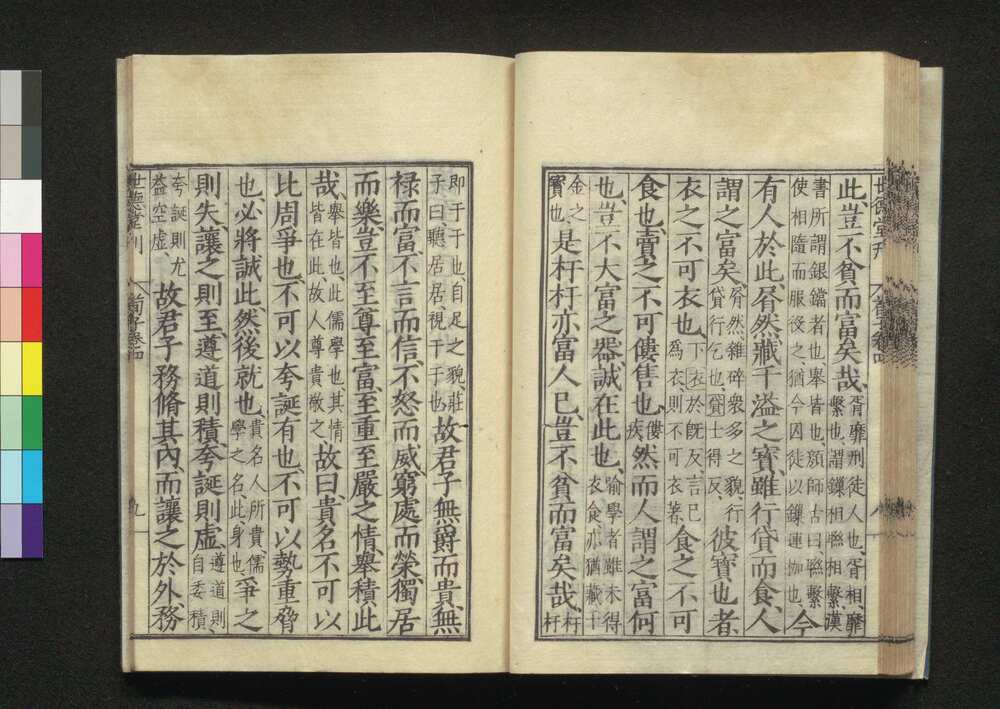 此、豈不貧而富矣哉、胥靡刑徒人也、胥相、靡
繫也、謂鏁相聮相繫、漢
書所謂銀鐺者也、舉皆也、顔師古曰、聮繫
使相隨而服役之、猶今囚徒以鏁連枷也、今
有人於此、屑然藏千溢之寳、雖行貸而食、人
謂之富矣、屑然、雜碎衆多之貌、行
貸行乞也、貸士得反、彼寳也者、
衣之不可衣也、下衣於旣反、言已
爲衣則不可衣著、食之不可
食也、賣之不可僂售也、僂
疾然而人謂之富何
也、豈不大富之器、誠在此也、喻學者雖未得
衣食亦猶藏千
金之
寳也是杅杅亦富人已、豈不貧而富矣哉、杅
杅
世德堂刊
荀子卷四
即于于也、自足之貌、莊
子曰聽居居視于于也故君子無爵而貴、無
禄而富、不言而信、不怒而威、窮處而榮、獨居
而樂、豈不至尊至富、至重至嚴之情、舉積此
哉、舉皆也、此儒學也、其情
皆在此、故人尊貴敬之故曰、貴名不可以
比周爭也、不可以夸誕有也、不可以勢重脅
也、必將誠此然後就也、貴名人所貴儒
學之名、此身也爭之
則失、讓之則至、遵道則積、夸誕則虚、遵道則、
自委積、
夸誕則尤
益空虚、故君子務脩其内、而讓之於外、務
世德堂刊
荀子卷四
九